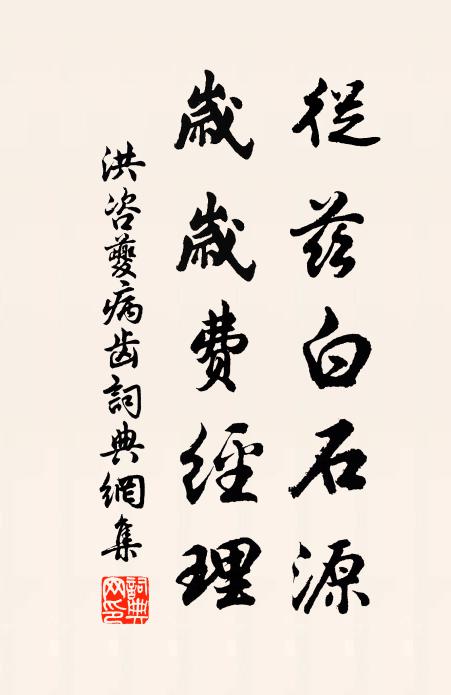 從茲白石源
歲歲費經理
洪咨夔病齿詞典網集
詞典网印